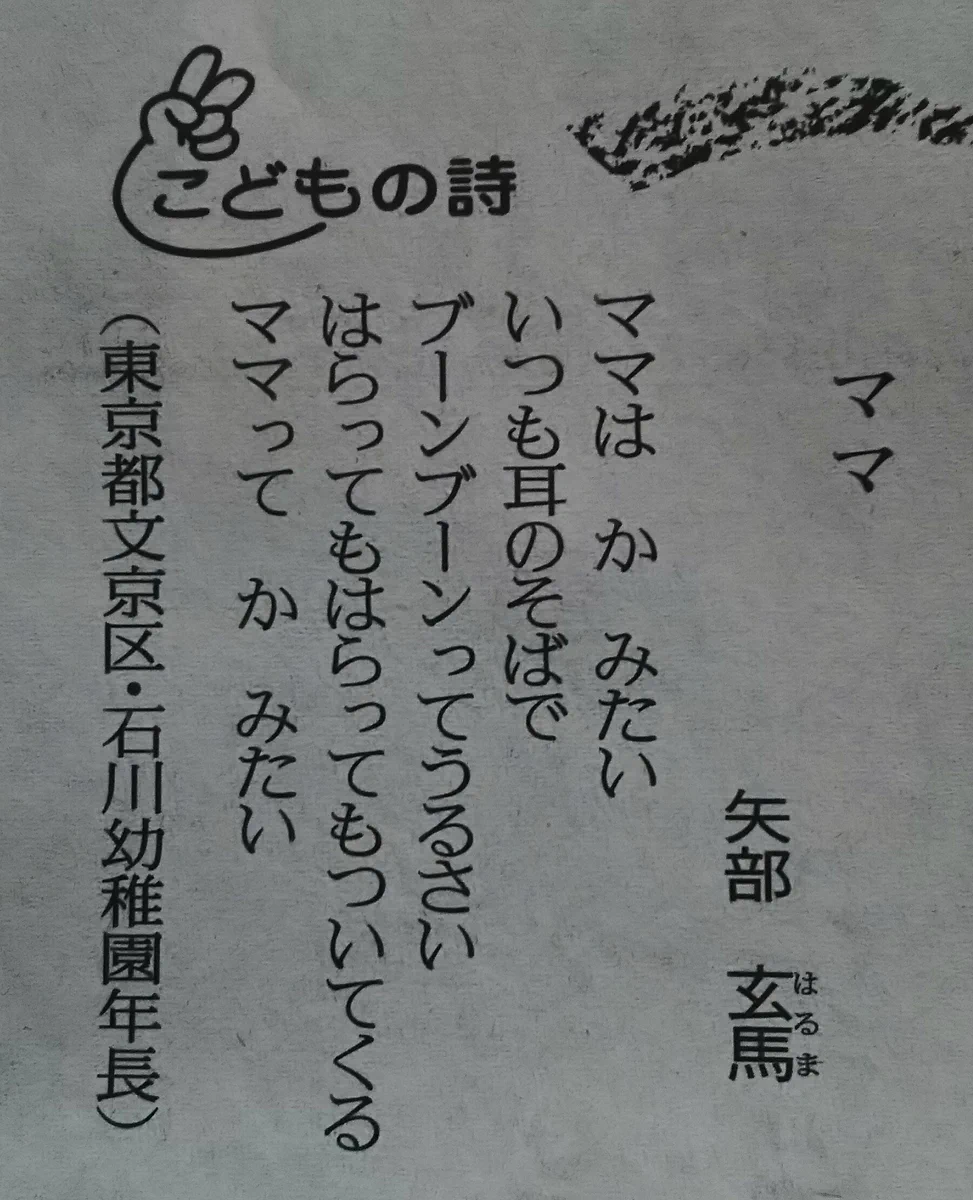 こどもの詩
ママ
矢部　玄馬
はるま
ママは　か　みたい
いつも耳のそばで
ブーンブーンってうるさい
はらってもはらってもついてくる
ママって　か　みたい
（東京都文京区・石川幼稚園年長）